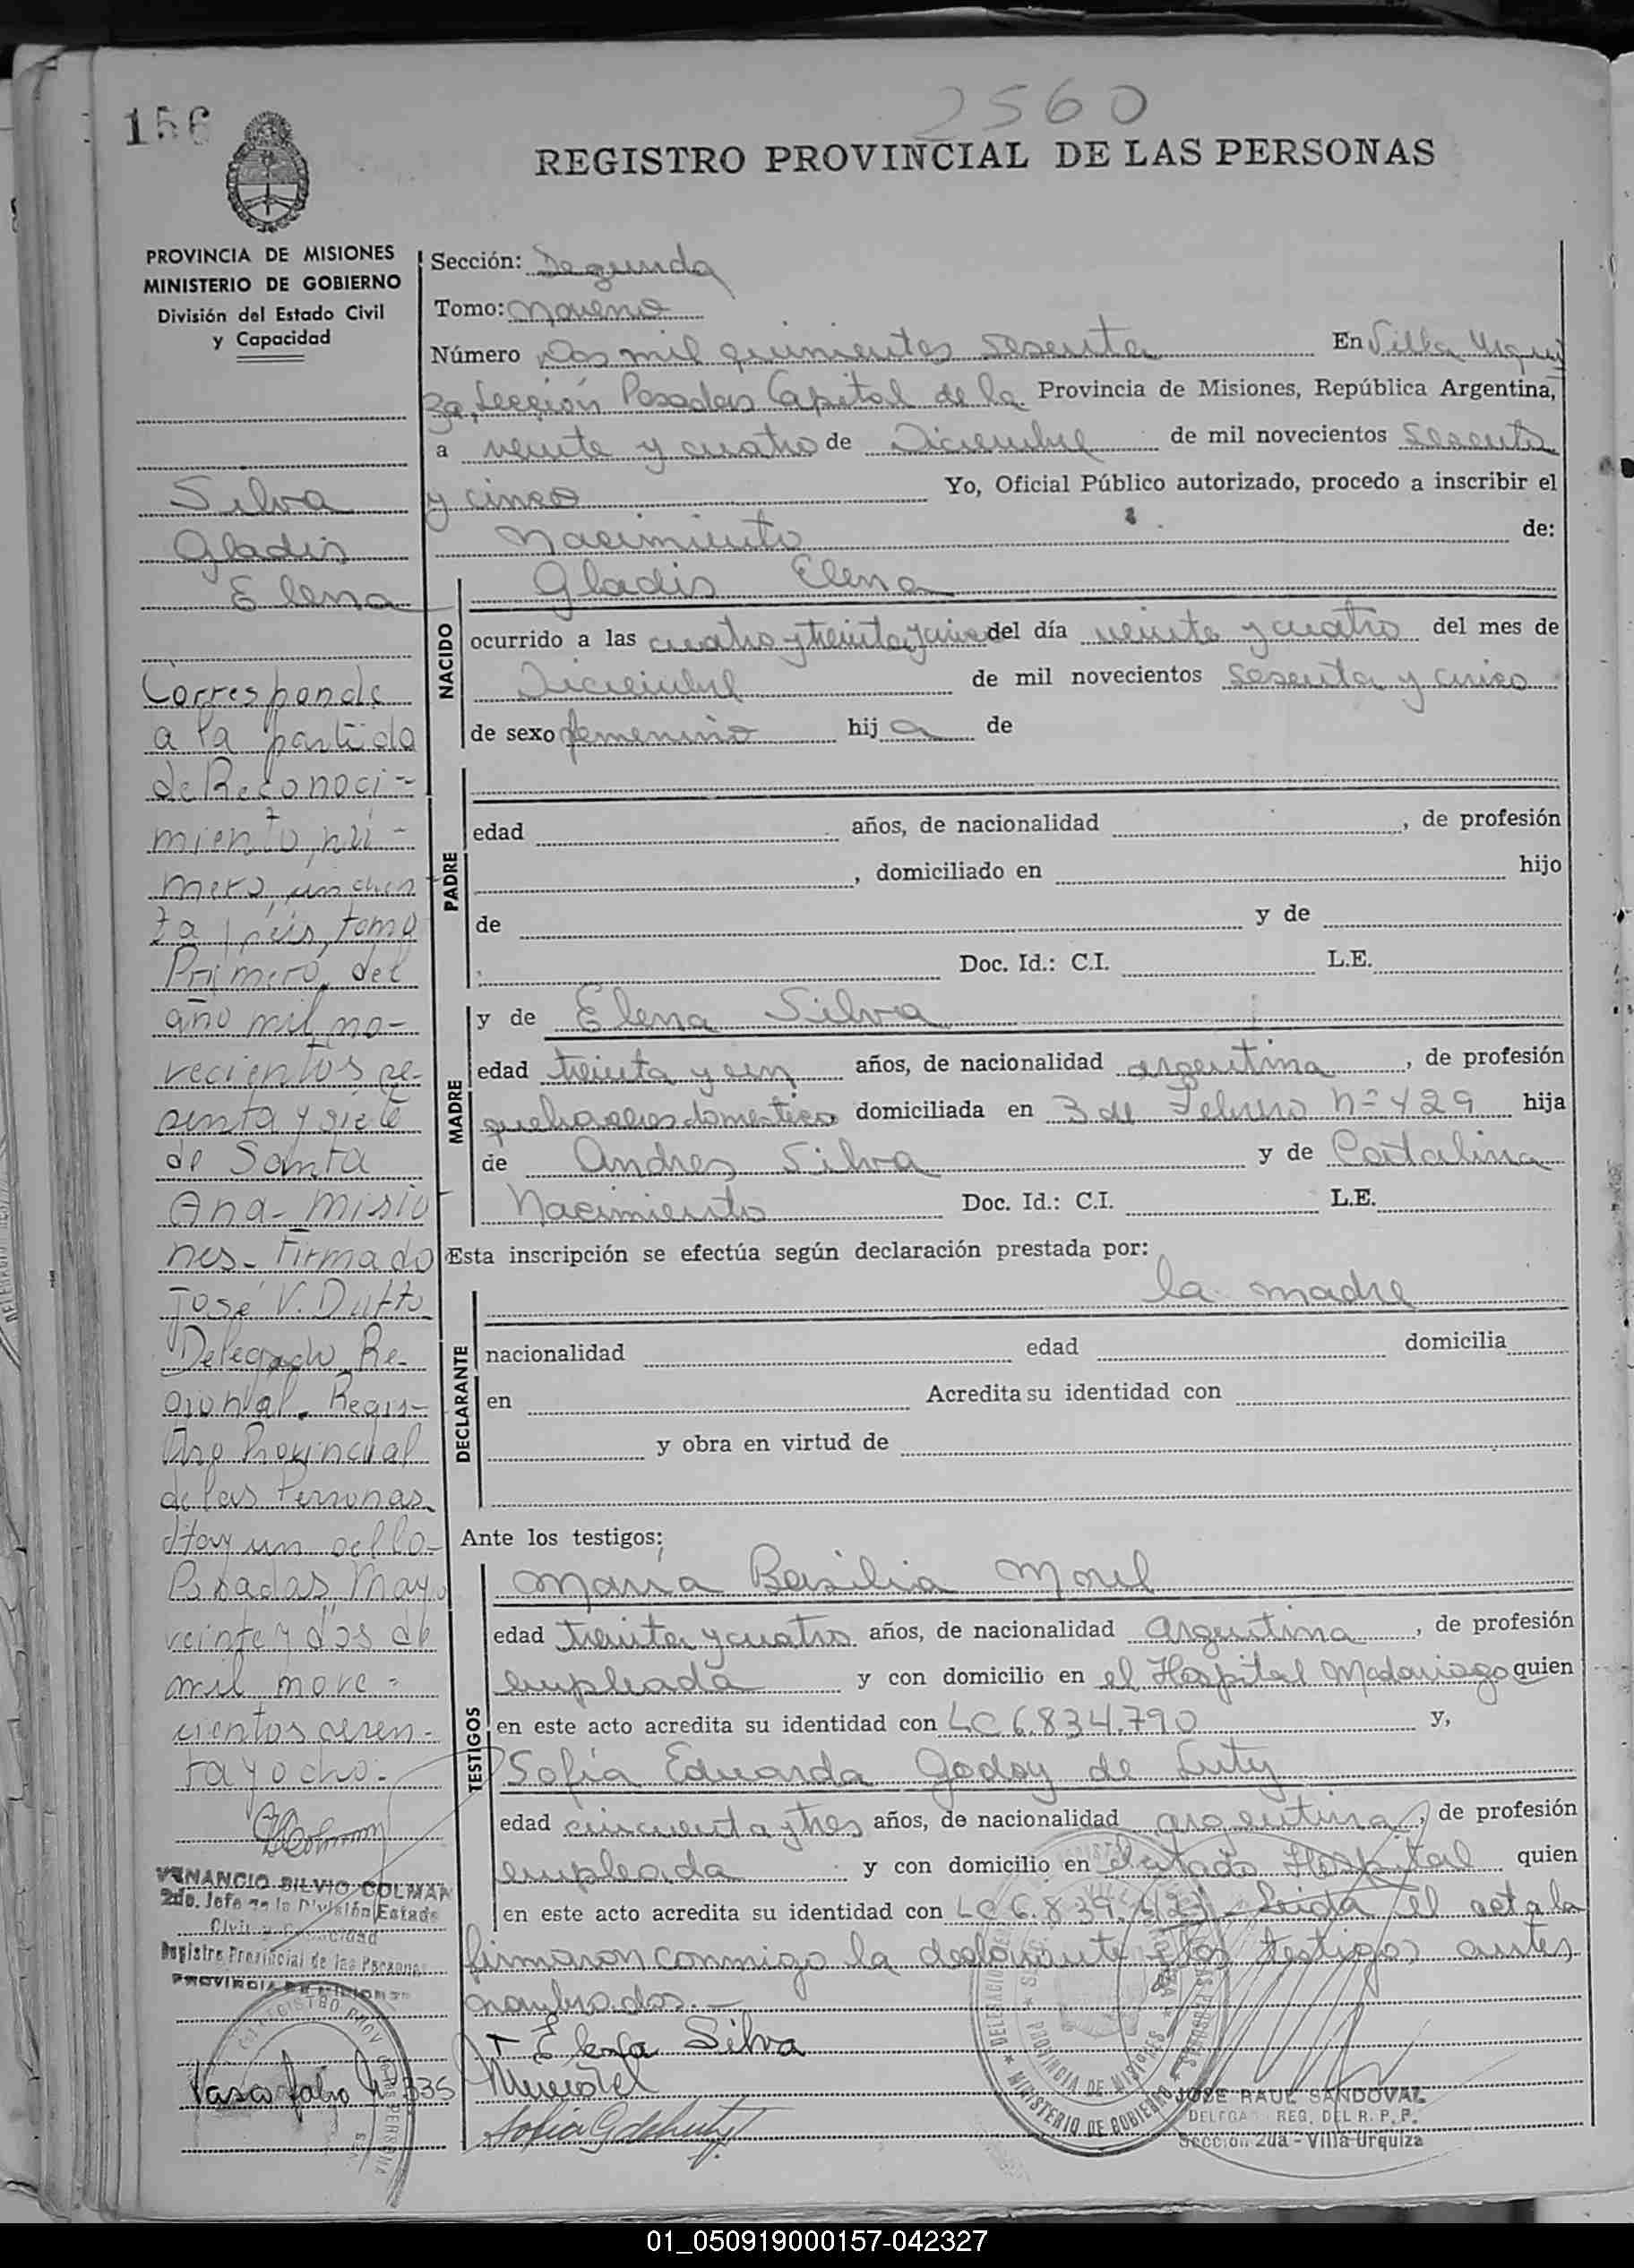 2560
156
REGISTRO PROVINCIAL DE LAS PERSONAS
PROVINCIA DE MISIONES
MINISTERIO DE GOBIERNO
División del Estado Civil
y Capacidad
Silva
Gladis
Elena
Corresponde
a la partida
de Reconoci-
miento, nú-
mero,
ta y seis, tomo
Primero, del
año mil no-
vecientos se-
senta y siete
de Santa
Ana - Misio
nes - Firmado
José V. Dutto
Delegado Re-
gional. Regis-
tro Provincial
de las Personas
Hay un sello -
Posadas, Mayo
veinte y dos de
mil nove -
cientos sesen-
ta y ocho -
VENANCIO SILVIO COLMAN
2do. Jefe de la División Estado
Civil y Capacidad
Registro Provincial de las Personas
PROVINCIA DE MISIONES
Vasco folio 335
Sección: Segunda
Tomo: Noveno
Número Dos mil quinientos sesenta En Villa Urqui
za, Sección Posadas Capital de la Provincia de Misiones, República Argentina,
a veinte y cuatro de Diciembre de mil novecientos sesenta
y cinco Yo, Oficial Público autorizado, procedo a inscribir el
Nacimiento de:
NACIDO
Gladis Elena
ocurrido a las cuatro y treinta y cinco del día veinte y cuatro del mes de
Diciembre de mil novecientos sesenta y cinco
de sexo femenino hija de
PADRE
edad años, de nacionalidad , de profesión
, domiciliado en hijo
de y de
Doc. Id.: C.I. L.E.
MADRE
y de Elena Silva
edad treinta y un años, de nacionalidad argentina , de profesión
quehaceres domésticos domiciliada en 3 de Febrero Nº 429 hija
de Andres Silva y de Catalina
Nacimiento Doc. Id.: C.I. L.E.
Esta inscripción se efectúa según declaración prestada por:
DECLARANTE
la madre
nacionalidad edad domicilia
en Acredita su identidad con
y obra en virtud de
Ante los testigos:
TESTIGOS
Maria Basilia Morel
edad treinta y cuatro años, de nacionalidad argentina , de profesión
empleada y con domicilio en el Hospital Madariaga quien
en este acto acredita su identidad con LC 6.834.790 y,
Sofia Eduarda Godoy de Luty
edad cincuenta y tres años, de nacionalidad argentina , de profesión
empleada y con domicilio en citado Hospital quien
en este acto acredita su identidad con LC 6.839. - Leida el acta la
firmaron conmigo la declarante y los testigos antes
nombrados. -
Elena Silva
MMorel
Sofia G de Luty
DELEGACION
MINISTERIO DE GOBIERNO
PROVINCIA DE MISIONES
JOSE RAUL SANDOVAL
DELEGA REG. DEL R. P. P.
Sección 2da - Villa Urquiza
01_050919000157-042327